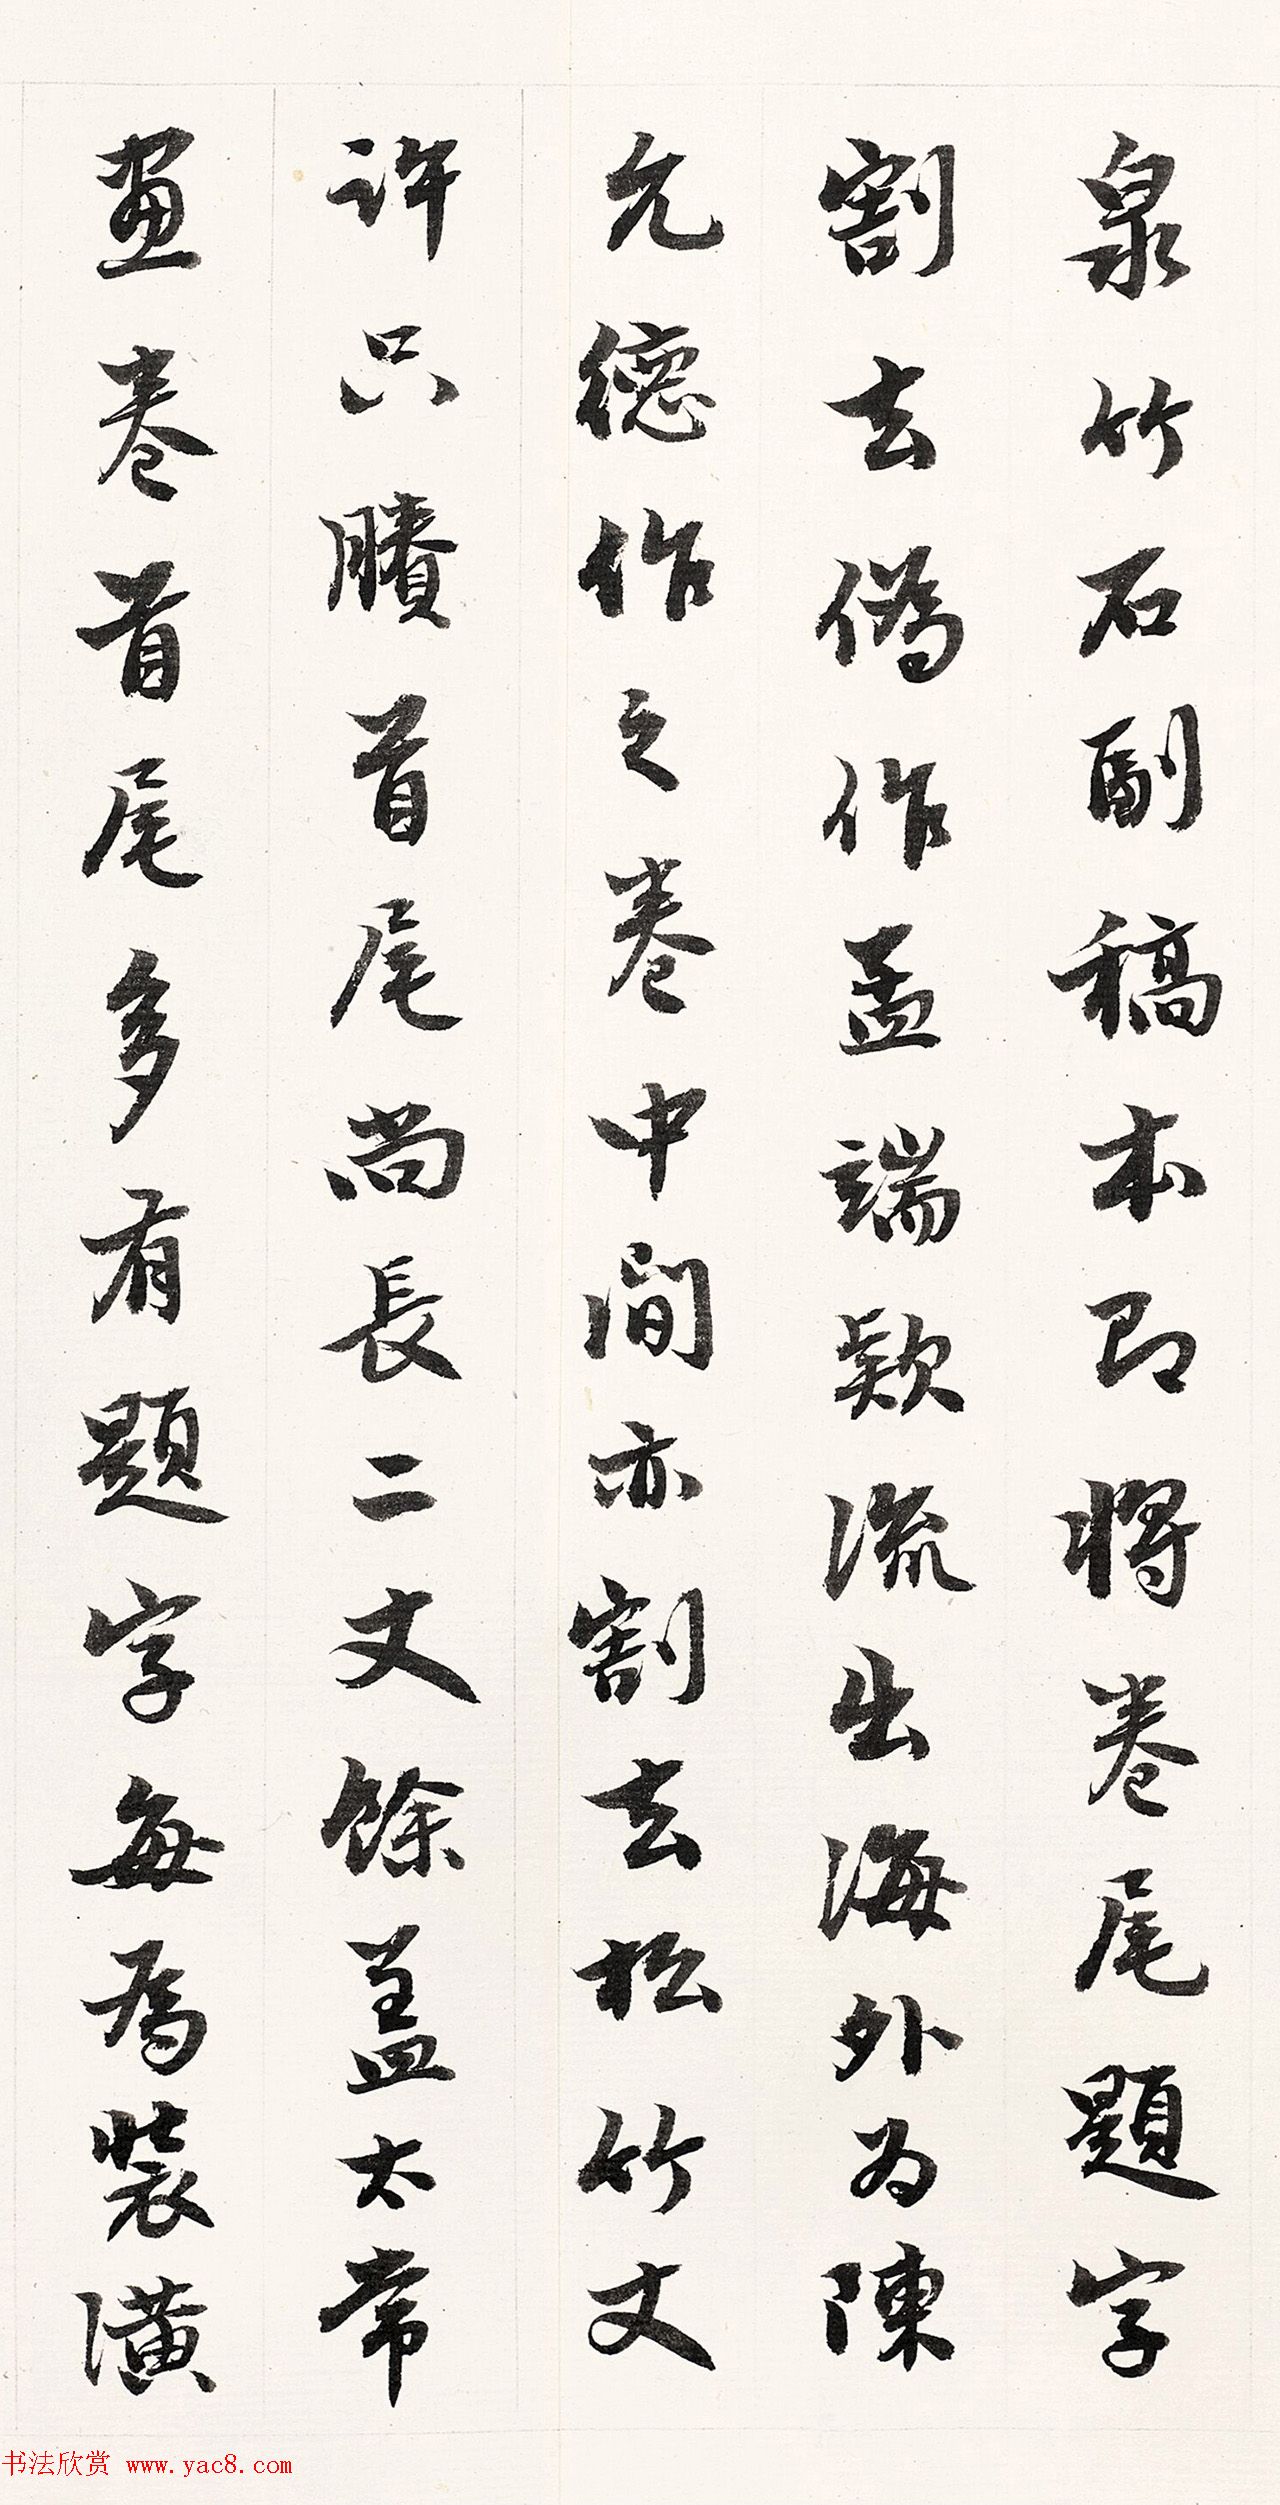 泉竹石副稿本即將卷尾題字
割去偽作孟端款流出海外为陳
允德作之卷中間亦割去松竹丈
許只賸首尾尚長二丈餘蓋太常
畫卷首尾多有題字每為裝潢
书法欣赏 www.yac8.com